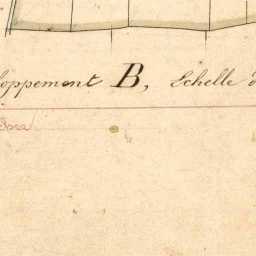 loppement B, Echelle d